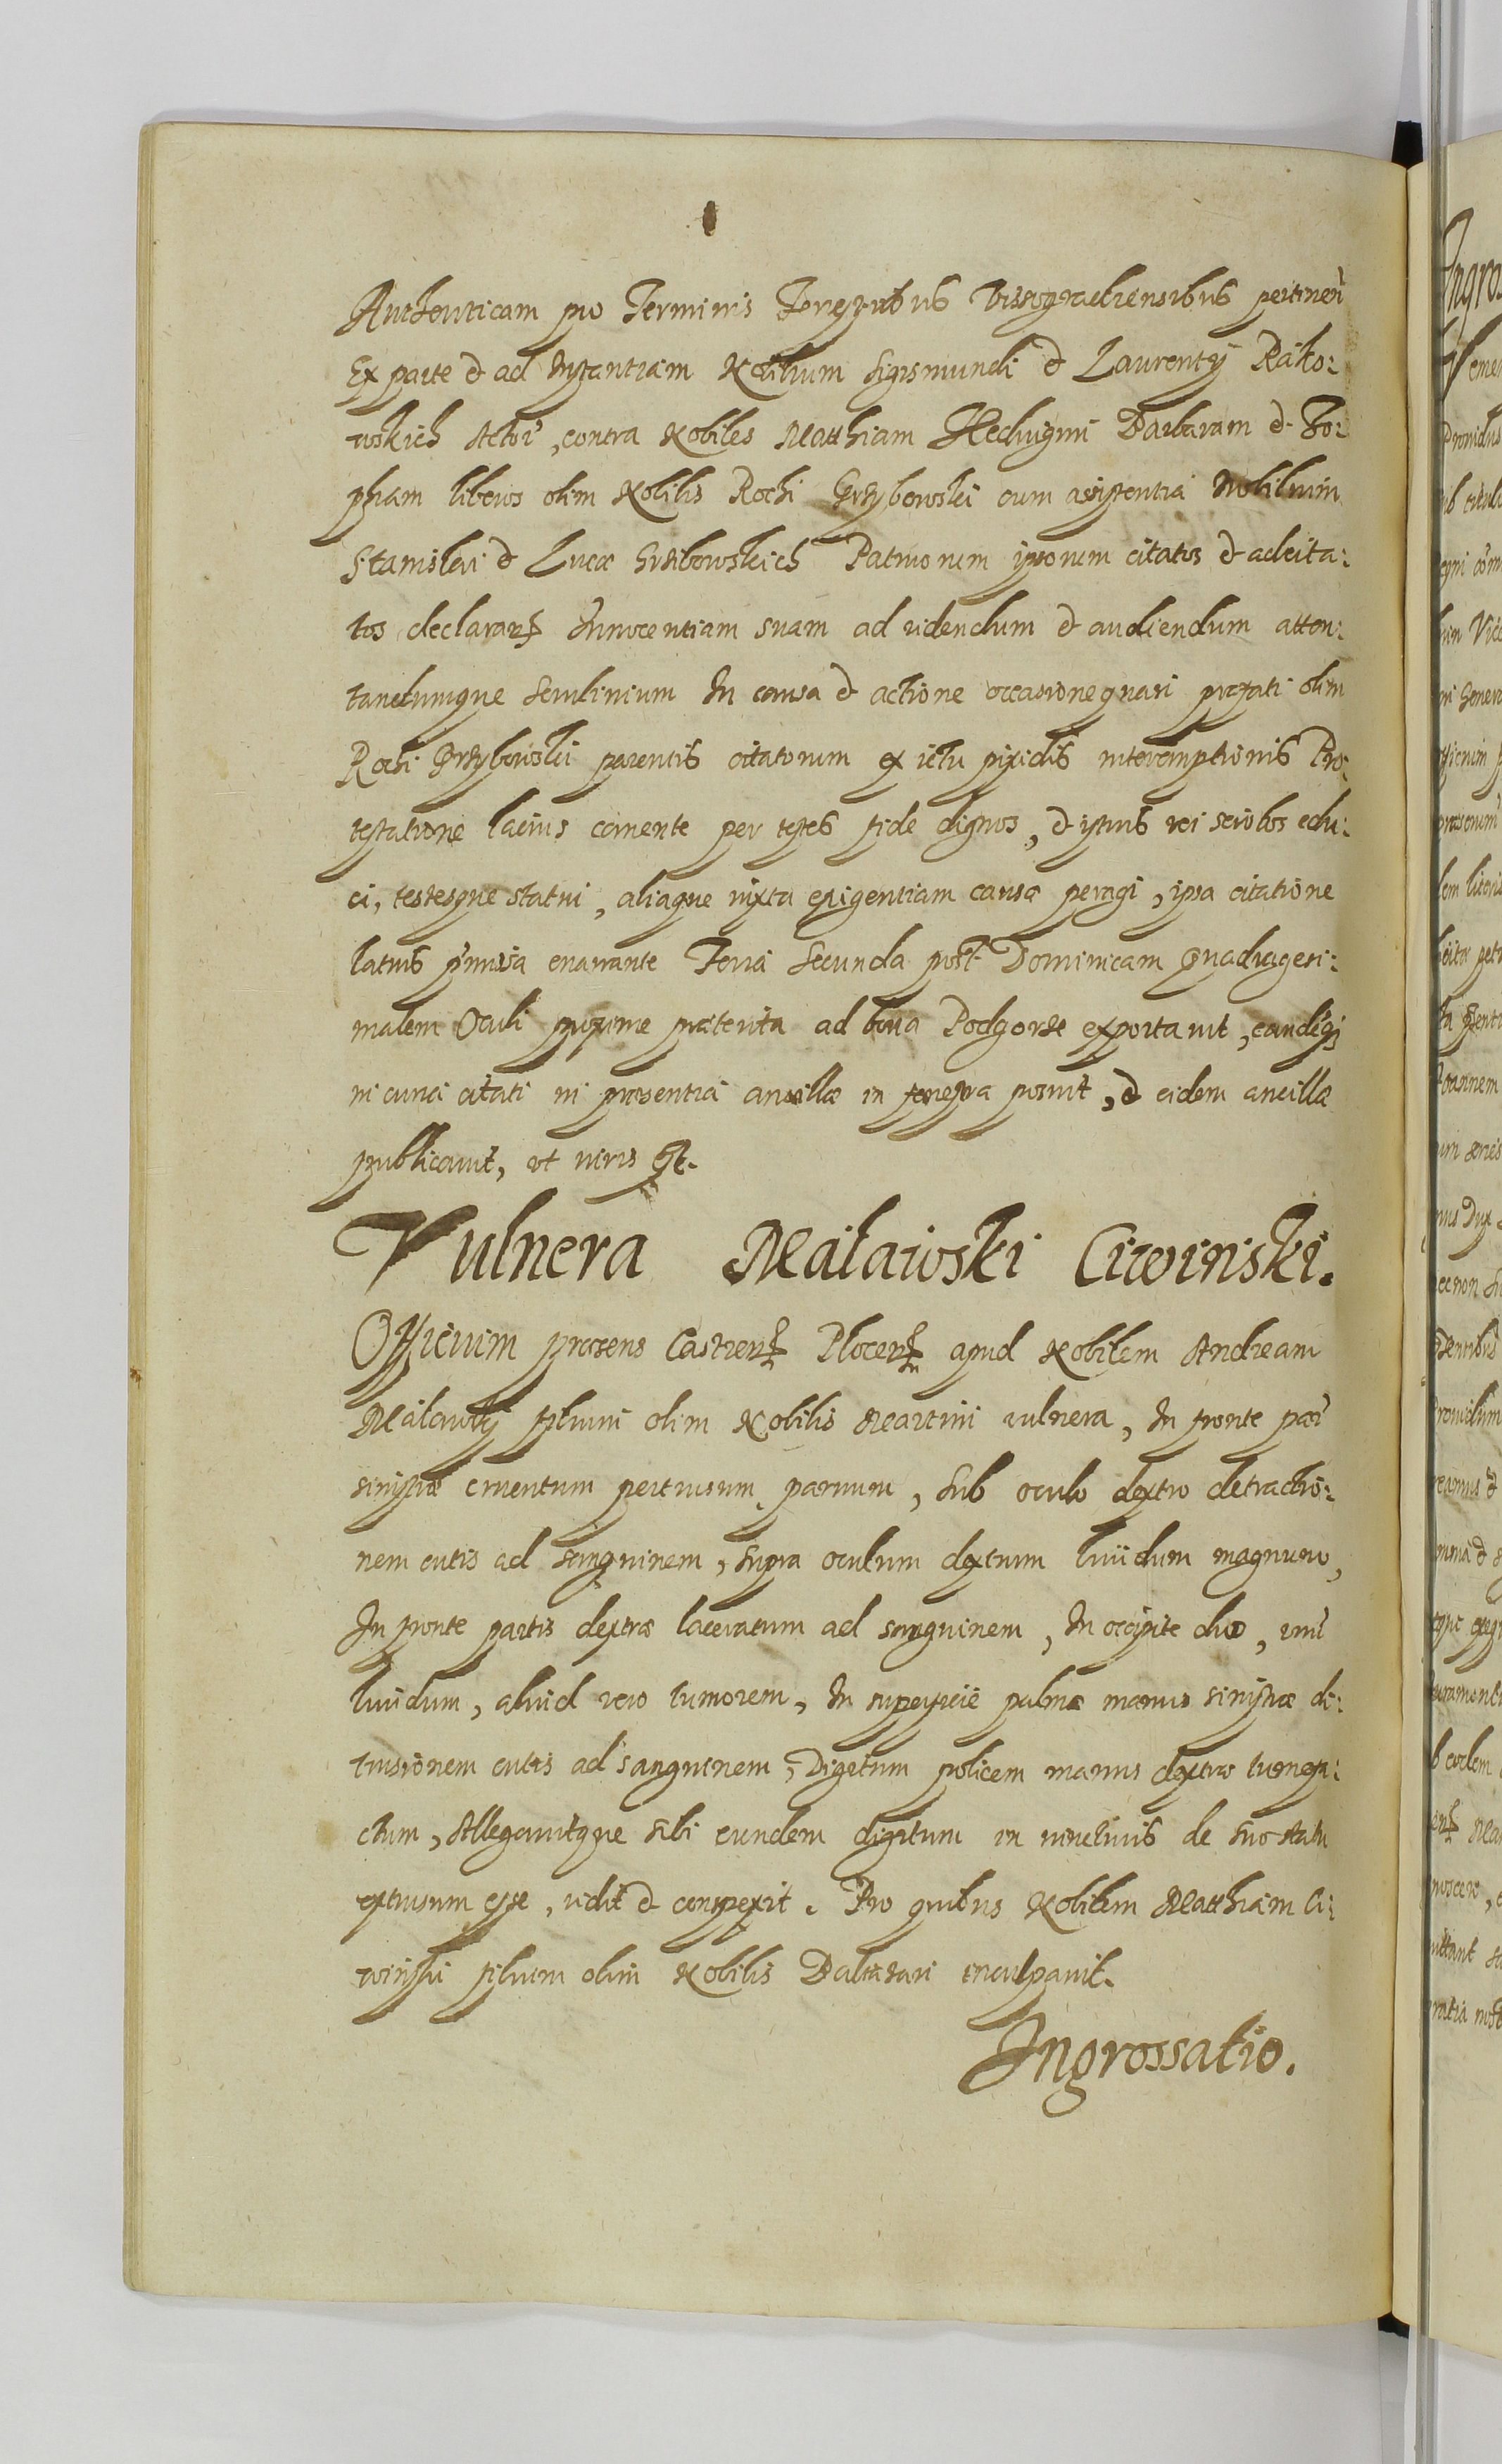 Authenticam pro Terminis Terrestribus Vissogradiensibus pertineñ
Ex parte & ad Instantiam Nobilium Sigismundi & Laurentÿ Rako:
wskich Actor̃, contra Nobiles Matthiam Hedvigim Barbaram & Zo:
phiam liberos olim Nobilis Rochi Grzybowski cum assistentia Nobilium
Stanislai & Lucæ Grzibowskich Patruorum ipsorum citatos & adcita:
tos declarare Innocentiam suam ad videndum & audiendum atten:
tandumque Scrutinium In causa & actione occasione quasi præfati olim
Rochi Grzybowski parentis citatorum ex ictu pixidis interemptionis Pro:
testatione lacius canente per testes fide dignos, & istius rei sciolos edu:
ci, testesque statui, aliaque iuxta exigentiam causæ peragi, ipsa citatione
latius præmissa enarrante Feria Secunda post Dominicam Quadragesi:
malem Oculi proxime præterita ad bona Podgorze exportavit, eandẽqʒ
in curia citati in præsentia ancillæ in fenestra posuit, & eidem ancillæ
publicavit, ut iuris est.
Vulnera Malawski Ciwinski.
Officium præsens Castren Plocen apud Nobilem Andream
Malawskÿ filium olim Nobilis Martini vulnera, In fronte par̃
sinistræ cruentum pertusum parvum, Sub oculo dextro detractio:
nem cutis ad sanguinem, Supra oculum dextrum lividum magnum,
In fronte partis dextræ laceratum ad sanguinem, In occipite duo, unũ
lividum, aliud vero tumorem, In superficie palmæ manus sinistræ de:
trusionem cutis ad sanguinem, Digitum policem manus dextræ tumefa:
ctum, Allegavitque sibi eundem digitum in iuncturis de suo statu
extrusum esse, vidit & conspexit. Pro quibus Nobilem Matthiam Ci:
winski filium olim Nobilis Baltazari inculpavit.
Ingrossatio.